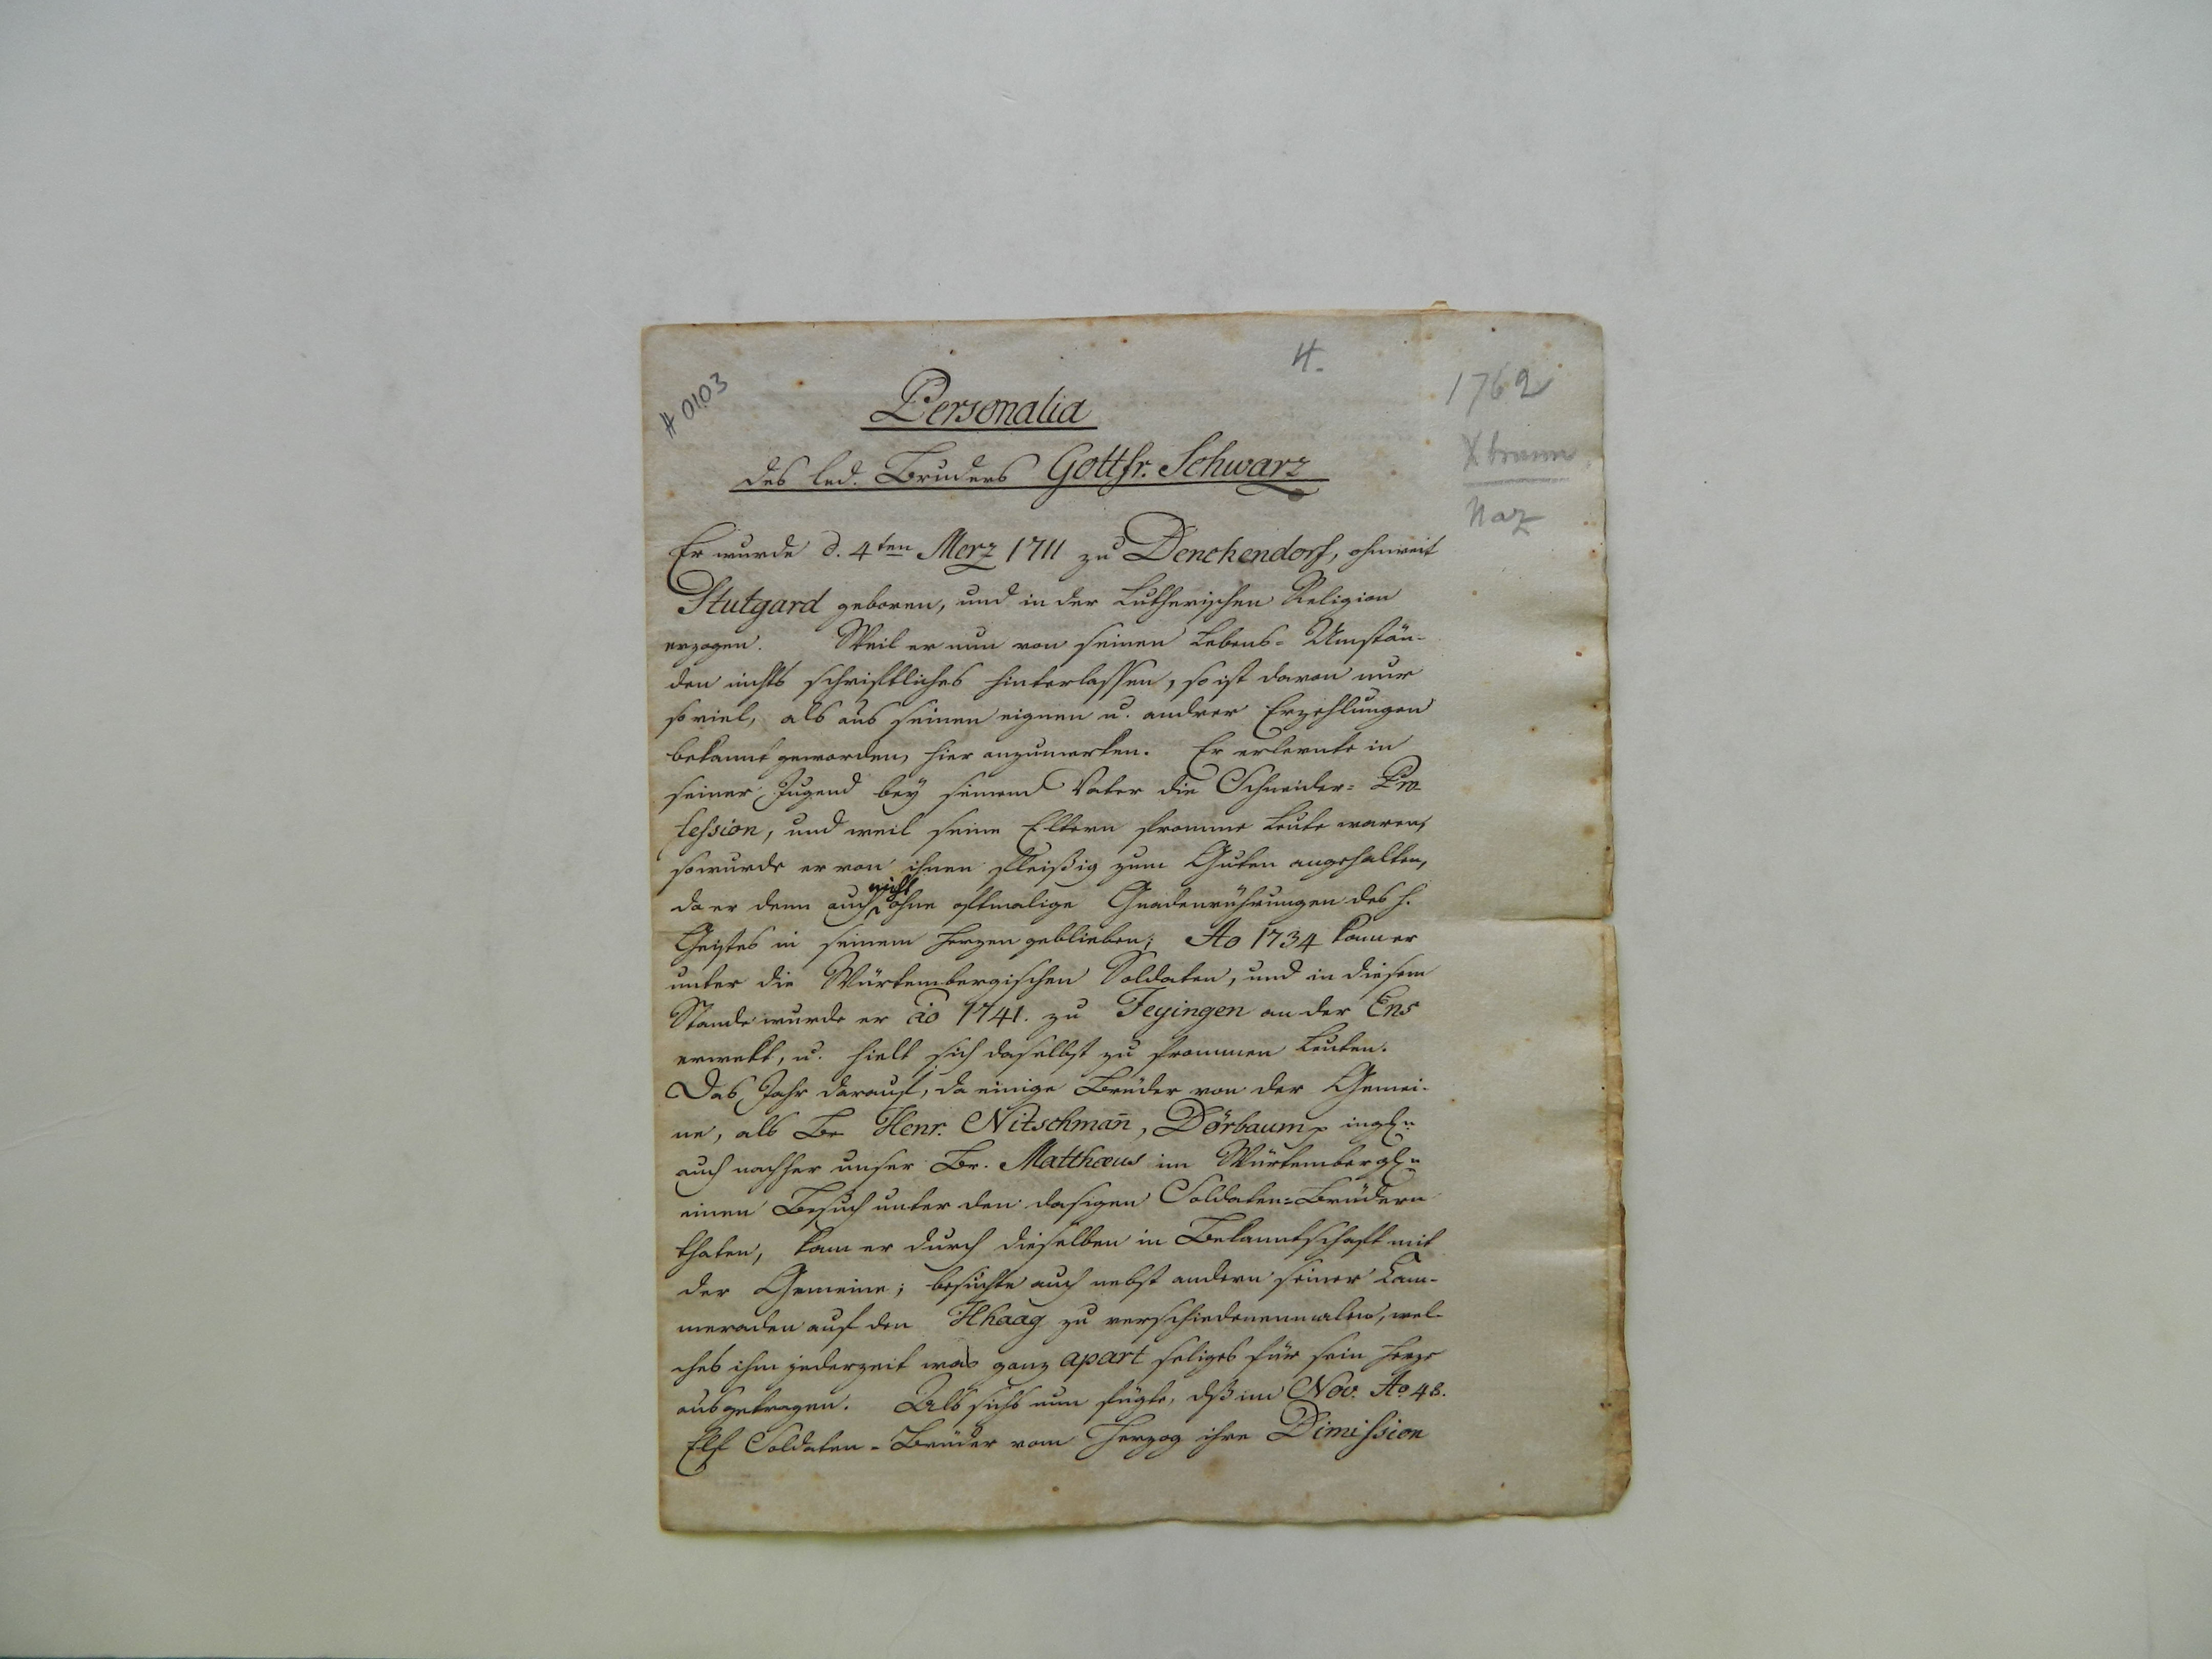 # 0103
4.
1762
X braun
Naz
Personalia
des led. Bruders Gottfr. Schwarz
Er wurde d. 4ten Merz 1711 zu Denckendorf, ohnweit
Stutgard geboren, und in der Lutherischen Religion
erzogen. Weil er nun von seinen Lebens-Umstän-
den nichts schriftliches hinterlassen, so ist davon nur
so viel, als aus seinen eignen u. andrer Erzehlungen
bekannt geworden, hier anzumerken. Er erlernte in
seiner Jugend bey seinem Vater die Schneider-Pro-
fession, und weil seine Eltern fromme Leute waren,
so wurde er von ihnen fleißig zum Guten angehalten,
da er denn auch nicht ohne oftmalige Gnadenrührungen des h.
Geistes in seinem Herzen geblieben; Ao 1734 kam er
unter die Würtembergischen Soldaten, und in diesem
Stande wurde er ao 1741. zu Feyingen an der Ens
erwekt, u. hielt sich daselbst zu frommen Leuten.
Das Jahr darauf, da einige Brüder von der Gemei-
ne, als Br Henr. Nitschman̄, Dörbaum p ingln
auch nachher unser Br. Matthæus im Würtembergln
einen Besuch unter den dasigen Soldaten-Brüdern
thaten, kam er durch dieselben in Bekanntschaft mit
der Gemeine; besuchte auch nebst andern seiner Kam-
meraden auf den Hhaag zu verschiedenenmalen, wel-
ches ihm jederzeit was ganz apart seliges für sein Herze
ausgetragen. Als sichs nun fügte, dß im Nov. Ao 48.
Elf Soldaten-Brüder vom Herzog ihre Dimission